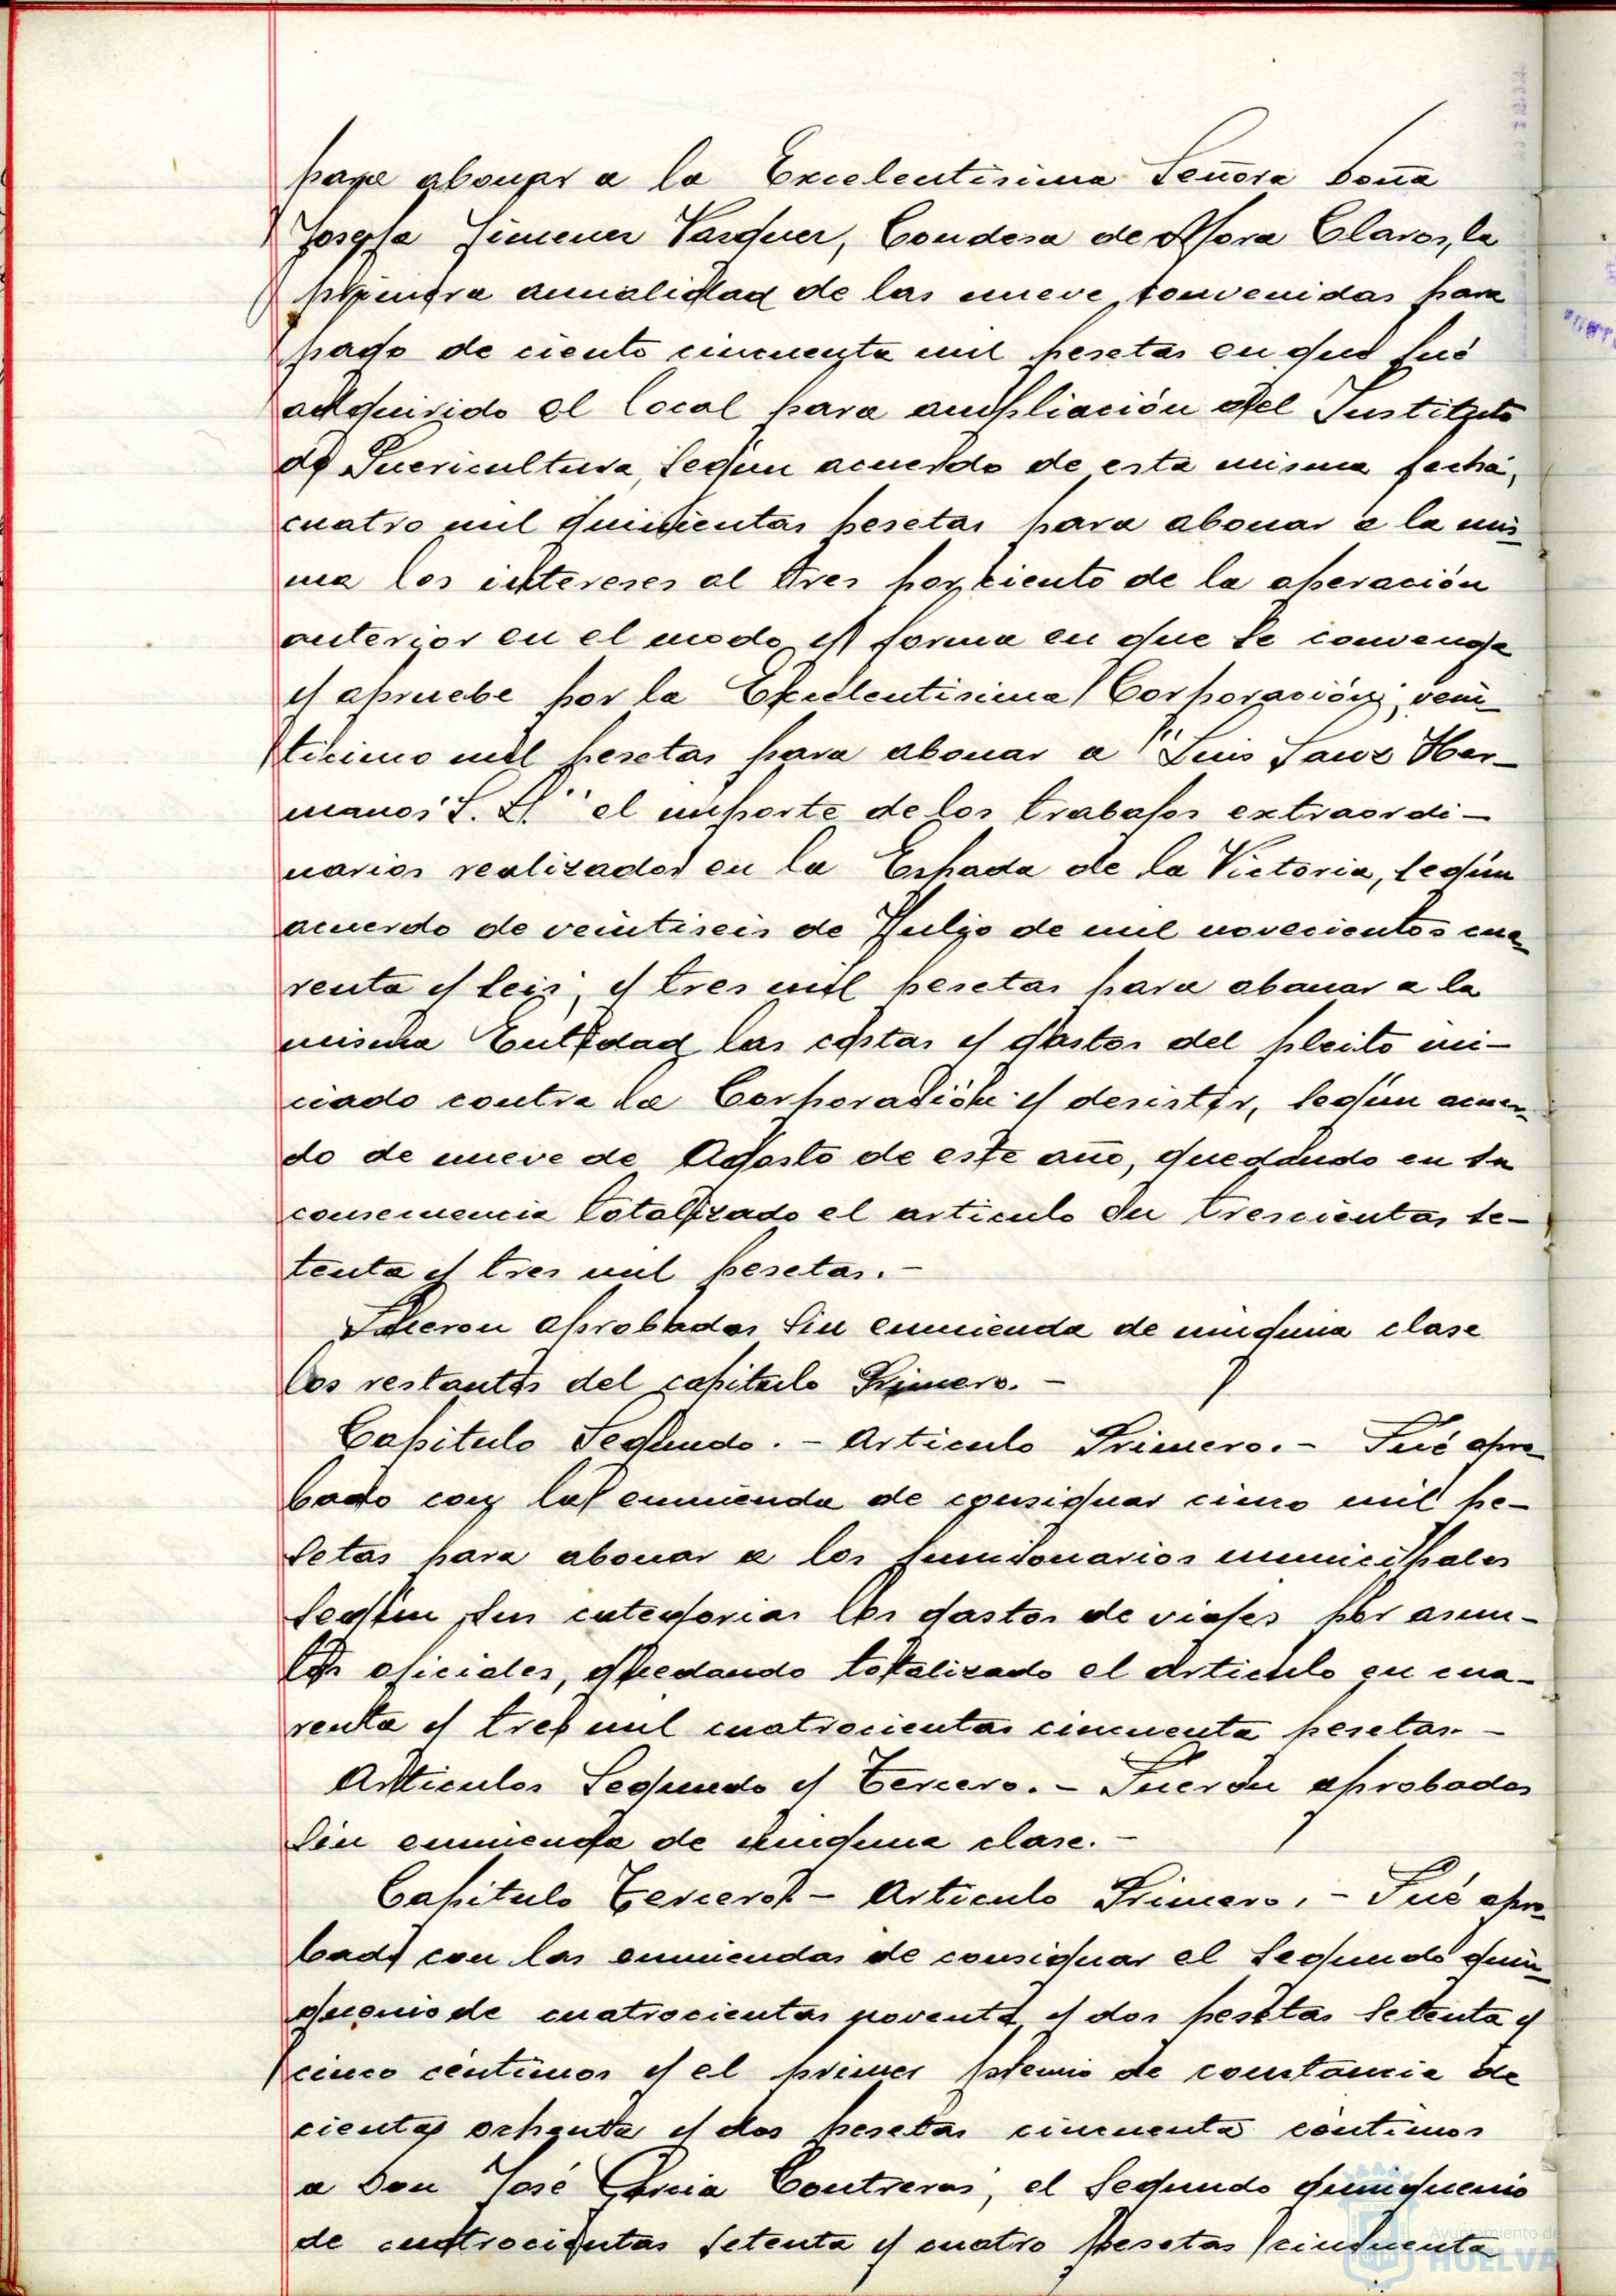 para abonar a la Excelentisima Señora Doña
Josefa Jimenez Vasquez, Condesa de Mora Claros, la
primera anualidad de las nueve convenidas para
pago de ciento cincuenta mil pesetas en que fué
adquirido el local para ampliación del Instituto
de Puericultura, según acuerdo de esta misma fecha;
cuatro mil quinientas pesetas para abonar a la mis-
ma los intereses al tres por ciento de la operación
anterior en el modo y forma en que se convenga
y apruebe por la Excelentisima Corporación; vein-
ticinco mil pesetas para abonar a "Luis Sanz Her-
manos S. L." el importe de los trabajos extraordi-
narios realizados en la Espada de la Victoria, según
acuerdo de veintiseis de Julio de mil novecientos cua-
renta y seis, y tres mil pesetas para abonar a la
misma Entidad las costas y gastos del pleito ini-
ciado contra la Corporación y desistir, según acuer-
do de nueve de Agosto de este año, quedando en su
consecuencia totalizado el articulo en trescientas se-
tenta y tres mil pesetas.-
Fueron aprobados sin enmienda de ninguna clase
los restantes del capitulo Primero.-
Capitulo Segundo.- Articulo Primero.- Fué apro-
bado con la enmienda de consignar cinco mil pe-
setas para abonar a los funcionarios municipales
según sus categorias los gastos de viajes por asun-
tos oficiales, quedando totalizado el articulo en cua-
renta y tres mil cuatrocientas cincuenta pesetas.-
Articulos Segundo y Tercero.- Fueron aprobados
sin enmienda de ninguna clase.-
Capitulo Tercero.- Articulo Primero.- Fué apro-
bado con las enmiendas de consignar el segundo quin-
quenio de cuatrocientas noventa y dos pesetas setenta y
cinco céntimos y el primer premio de constancia de
cientas ochenta y dos pesetas cincuenta céntimos
a Don José Garcia Contreras; el segundo quinquenio
de cuatrocientas setenta y cuatro pesetas cincuenta
Ayuntamiento de
HUELVA